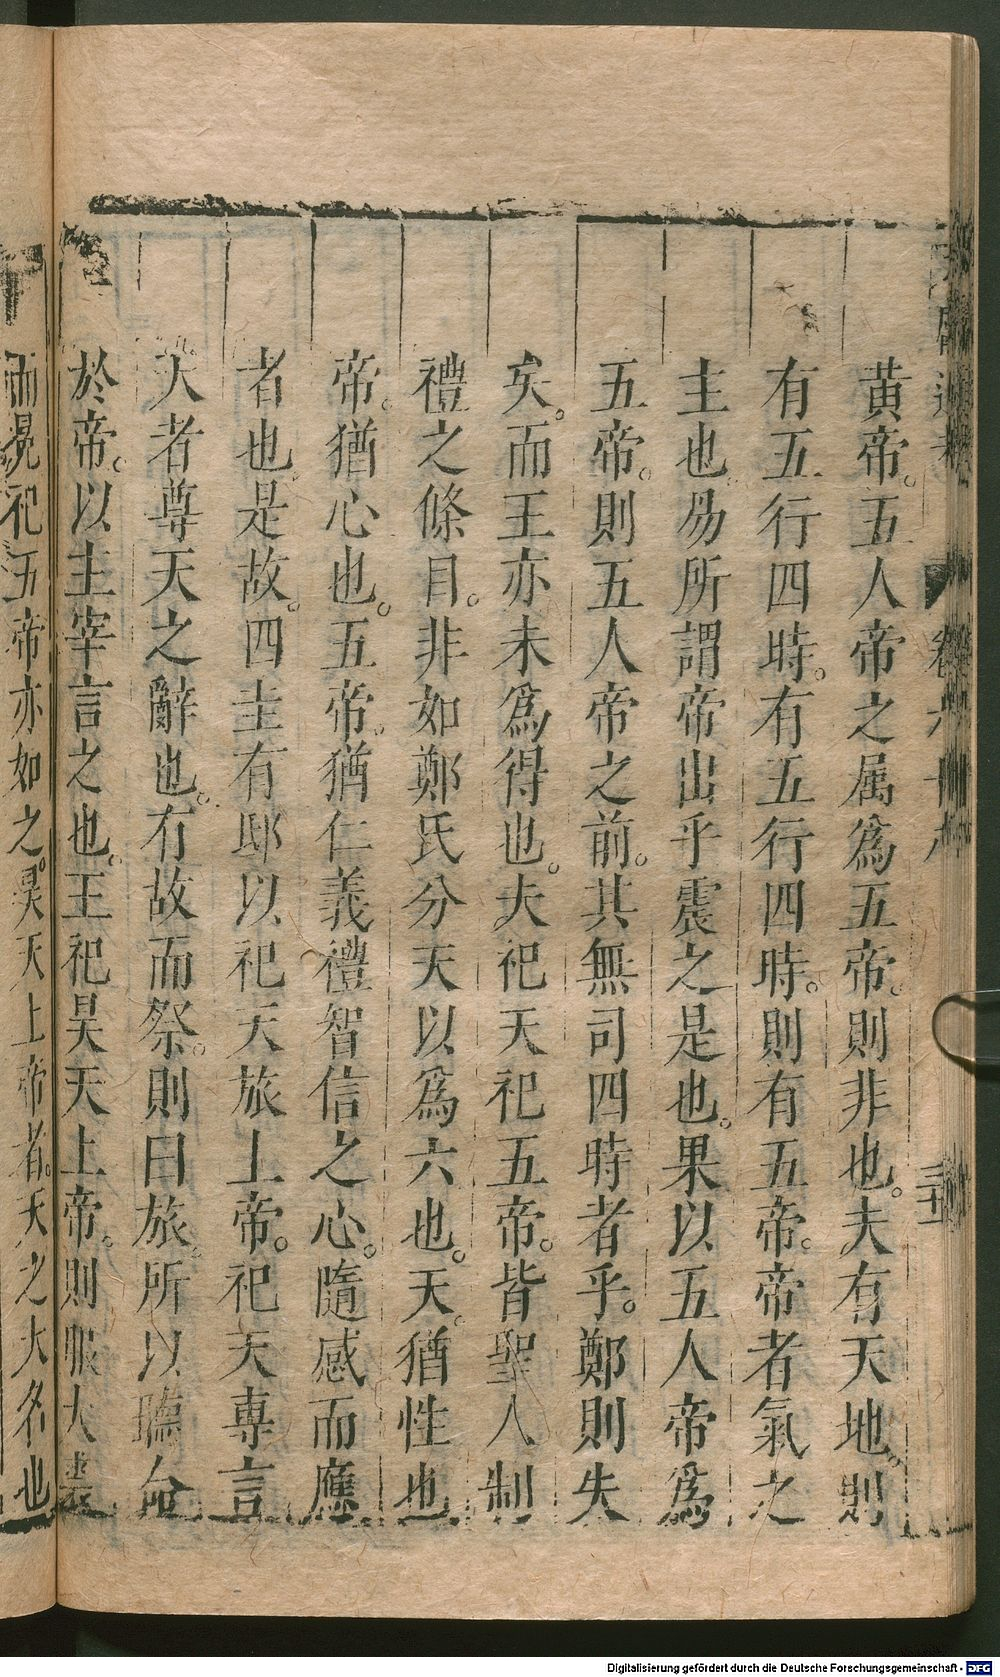 黄帝。五人帝之属爲五帝。則非也。夫有天地。則
有五行四時。有五行四時。則有五帝。帝者氣之
主也。易所謂帝出乎震之是也。果以五人帝爲
五帝。則五人帝之前。其無司四時者乎。鄭則失
矣。而王亦未爲得也。夫祀天祀五帝。皆聖人制
禮之條目。非如鄭氏分天以爲六也。天。猶性也
帝。猶心也。五帝。猶仁義禮智信之心。隨感而應
者也。是故。四圭有邸以祀天旅上帝。祀天專言
天者尊天之辭也。有故而祭。則曰旅。所以聽命
於帝。以主宰言之也。王祀昊天上帝。則服大裘
而冕祀五帝亦如之。昊天上帝者。天之大名也
Digitalisierung gefördert durch die Deutsche Forschungsgemeinschaft - DFG